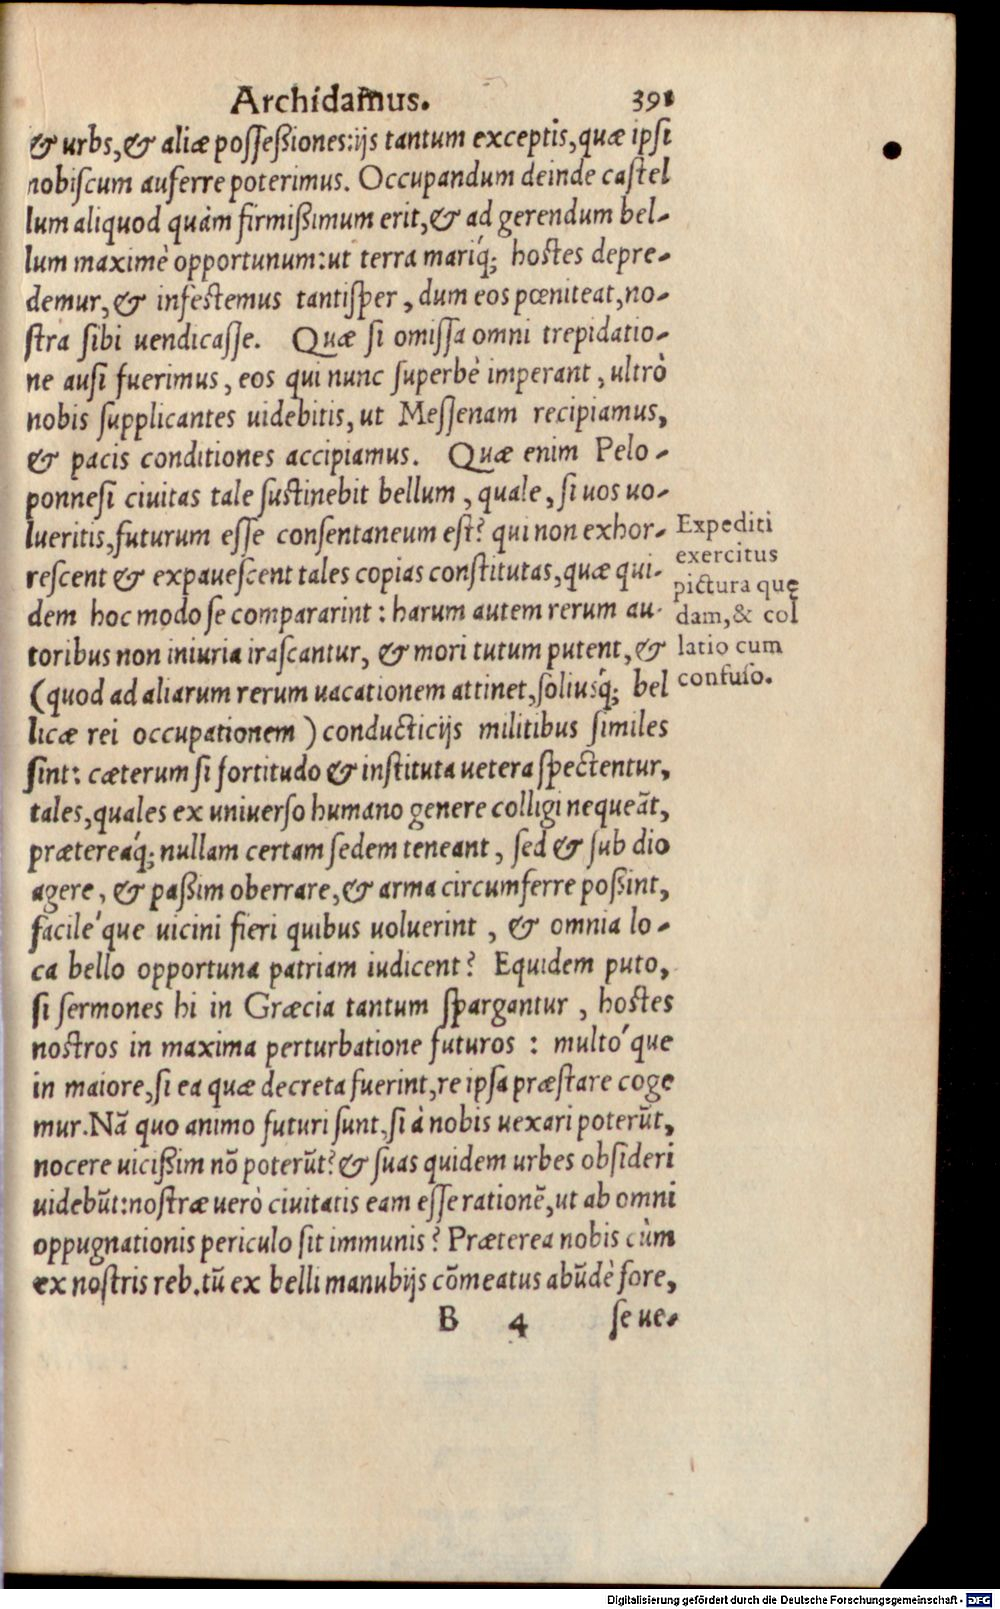 Archidamus. 391
& urbs, & aliæ possessiones: ijs tantum exceptis, quæ ipsi
nobiscum auferre poterimus. Occupandum deinde castel
lum aliquod quàm firmissimum erit, & ad gerendum bel-
lum maximè opportunum: ut terra mariq́; hostes depre-
demur, & infestemus tantisper, dum eos pœniteat, no-
stra sibi uendicasse. Quæ si omissa omni trepidatio-
ne ausi fuerimus, eos qui nunc superbè imperant, ultrò
nobis supplicantes uidebitis, ut Messenam recipiamus,
& pacis conditiones accipiamus. Quæ enim Pelo-
ponnesi ciuitas tale sustinebit bellum, quale, si uos uo-
lueritis, futurum esse consentaneum est? qui non exhor-
rescent & expauescent tales copias constitutas, quæ qui-
dem hoc modo se compararint: harum autem rerum au-
toribus non iniuria irascantur, & mori tutum putent, &
(quod ad aliarum rerum uacationem attinet, soliusq́; bel
licæ rei occupationem) conducticijs militibus similes
sint: cæterum si fortitudo & instituta uetera spectentur,
tales, quales ex uniuerso humano genere colligi nequeãt,
prætereaq́; nullam certam sedem teneant, sed & sub dio
agere, & passim oberrare, & arma circumferre possint,
facile´que uicini fieri quibus uoluerint, & omnia lo-
ca bello opportuna patriam iudicent? Equidem puto,
si sermones hi in Græcia tantum spargantur, hostes
nostros in maxima perturbatione futuros: multo´que
in maiore, si ea quæ decreta fuerint, re ipsa præstare coge
mur. Nã quo animo futuri sunt, si à nobis uexari poterũt,
nocere uicissim nõ poterũt? & suas quidem urbes obsideri
uidebũt: nostræ uerò ciuitatis eam esse rationẽ, ut ab omni
oppugnationis periculo sit immunis? Præterea nobis cùm
ex nostris reb. tũ ex belli manubijs cõmeatus abũdè fore,
B 4 se ue-
Expediti
exercitus
pictura quę
dam, & col
latio cum
confuso.
Digitalisierung gefördert durch die Deutsche Forschungsgemeinschaft - DFG